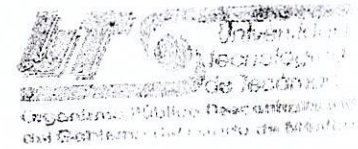 Universidad
Tecnológica
de Tecámac
Organismo Público Descentralizado
del Gobierno del Estado de México